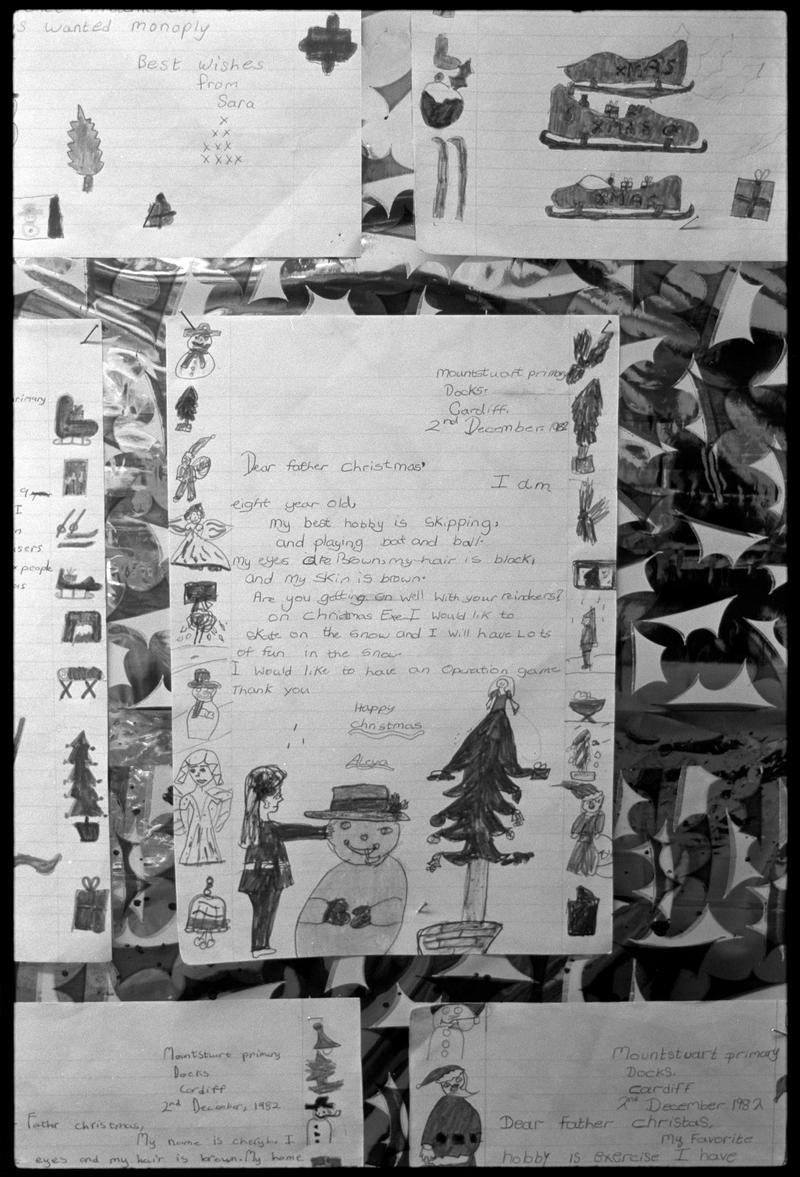 s wanted monoply
Best wishes
from
Sara
x
x x
x x x
x x x x
XMAS
XMAS
XMAS
rimary
I
n
users
people
Mountstuart primary
Docks.
Cardiff.
2nd December. 1982
Dear father christmas,
I am
eight year old,
my best hobby is skipping,
and playing bat and ball.
my eyes are Brown, my hair is black,
and my skin is brown.
Are you getting on well with your reindeers?
on Christmas Eve I would lik to
skate on the snow and I will have Lots
of fun in the snow
I would like to have an Operation game
Thank you
Happy
Christmas
Mountstuart primary
Docks
Cardiff
2nd December, 1982
Father christmas,
My name is cheryl. I
eyes and my hair is brown. My home
Mountstuart primary
Docks.
cardiff
2nd December 1982
Dear father christas,
My Favorite
hobby is exercise I have